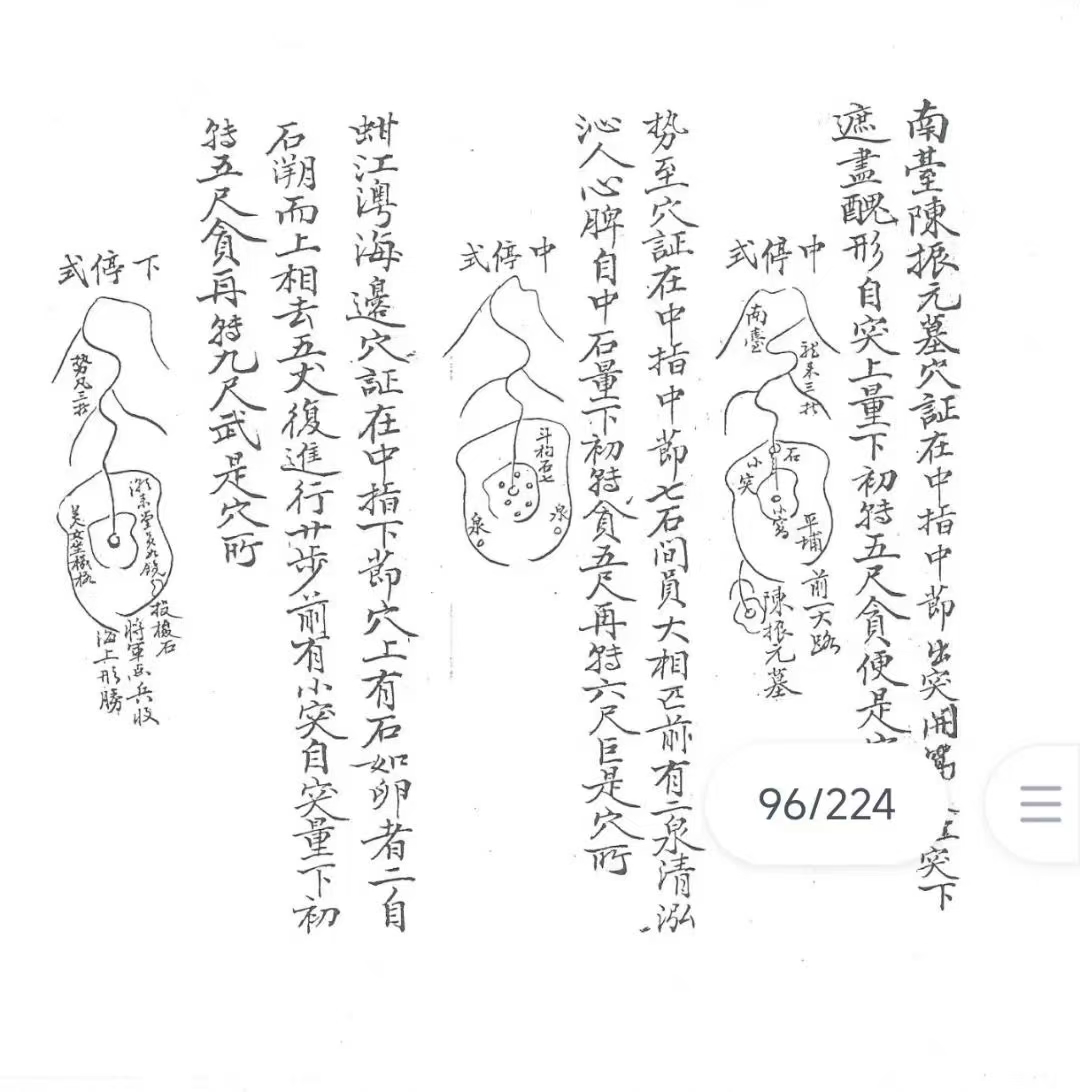 南臺陳振元墓穴証在中指中節出突開窩
突下
遮盡醜形自突上量下初特五尺貪便是
中停式
南臺
龍来三折
石
小突
小窩
平埔
前一大路
陳振元墓
势至穴証在中指中節七石间員大相匹前有二泉清泓
沁人心脾自中石量下初特貪五尺再特六尺巨是穴所
中停式
斗杓石七
泉
泉
蚶江灣海邊穴証在中指下節穴上有石如卵者二自
石溯而上相去五丈復進行廿步前有小突自突量下初
特五尺貪再特九尺武是穴所
下停式
势凡三折
美女坐
投梭石
將軍
兵收
海上形勝
96/224